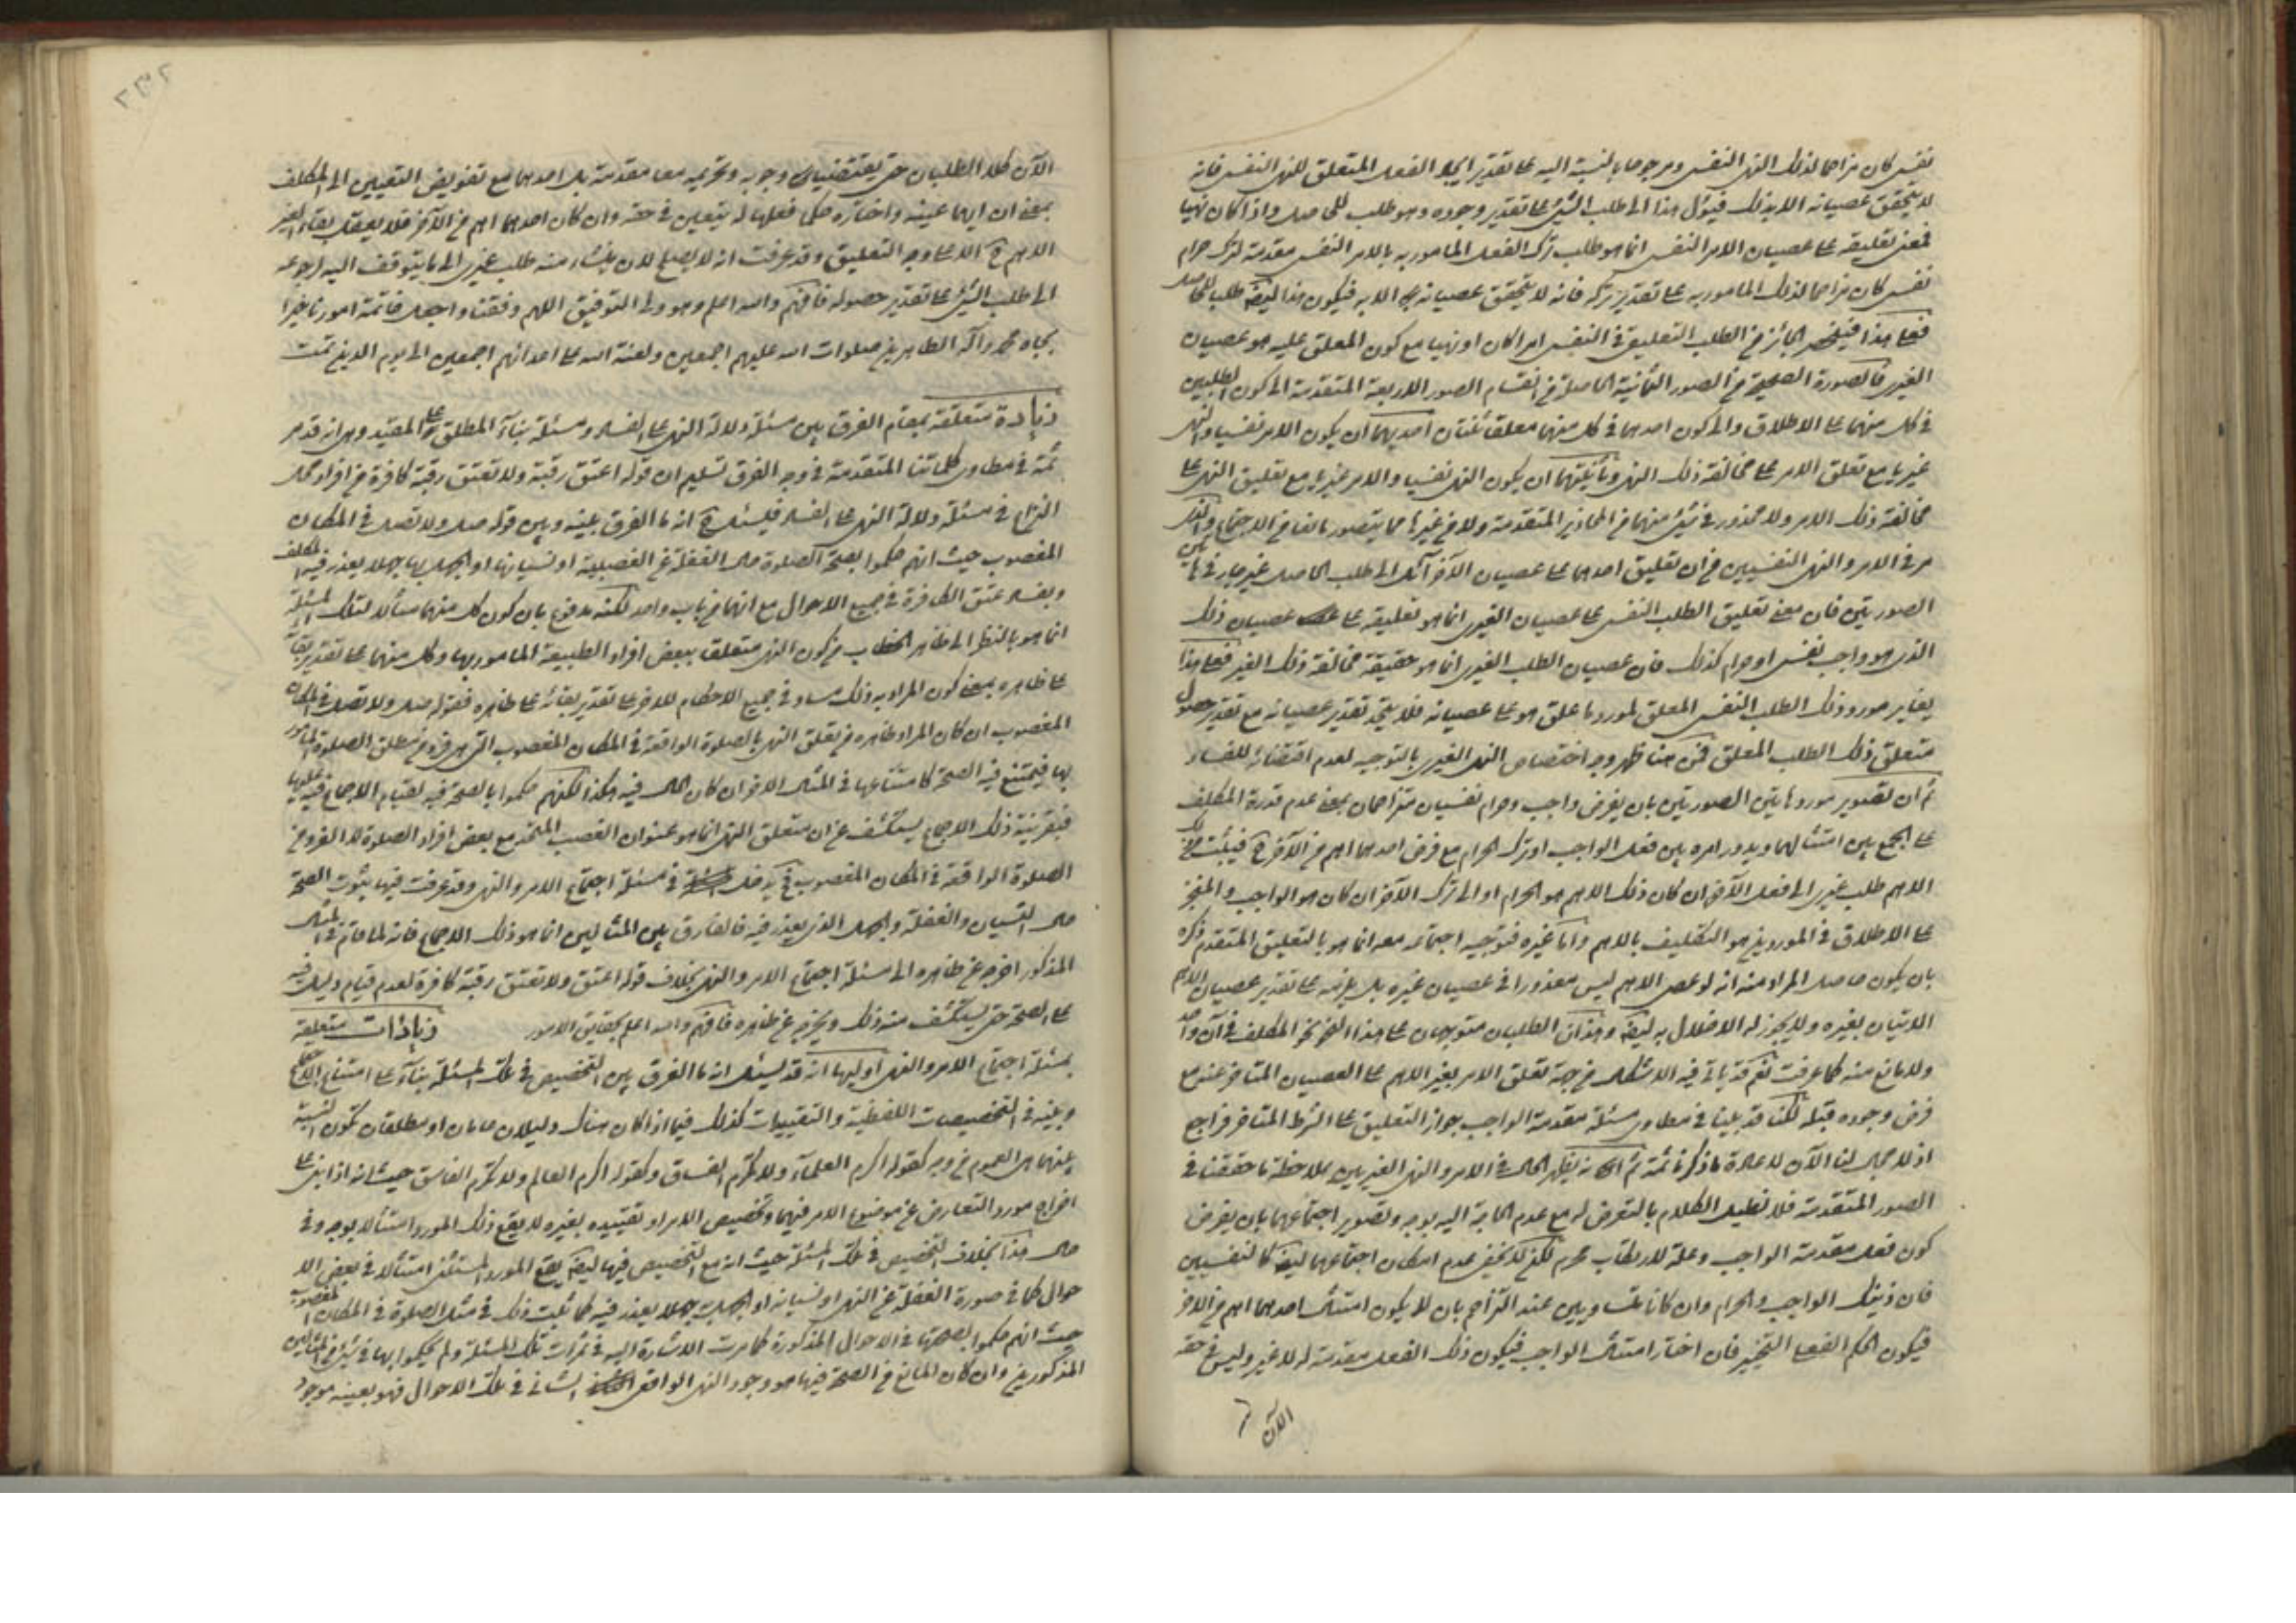 نفسى كان مزاحما لذلك النهى النفسى ومرجوحا بالنسبة اليه على تقدير ايجاد الفعل المتعلق للنهى النفسى فانه
لا يتحقق عصيانه الا بذلك فيؤل هذا الى طلب الشئ على تقدير وجوده وهو طلب للحاصل واذا كان نهيا
فمعنى تعليقه على عصيان الامر النفسى انما هو طلب ترك الفعل المامور به بالامر النفسى مقدمة لترك حرام
نفسى كان مزاحما لذلك المامور به على تقدير تركه فانه لا يتحقق عصيانه الا به فيكون هذا ايضا طلب للحاصل
فعلى هذا فينحصر الجائز من الطلب التعليقى فى النفسى امرا كان او نهيا مع كون المعلق عليه هو عصيان
الغيرى فالصورة الصحيحة من الصور الثمانية الحاصلة من انقسام الصور الاربعة المتقدمة الى كون الطلبين
فى كل منهما على الاطلاق والى كون احدهما فى كل منهما معلقا ثنتان احديهما ان يكون الامر نفسيا والنهى
غيريا مع تعلق الامر على مخالفة ذلك النهى وثانيتهما ان يكون النهى نفسيا والامر غيريا مع تعليق النهى على
مخالفة ذلك الامر ولا محذور فى شئ منهما من المحاذير المتقدمة ولا من غيرها مما يتصور مانعا من الاجتماع والذى
مر فى الامر والنهى النفسيين من ان تعليق احدهما على عصيان الآخر آئل الى طلب الحاصل غير جار فى هاتين
الصورتين فان معنى تعليق الطلب النفسى على عصيان الغيرى انما هو تعليقه على عصيان ذلك
الذى هو واجب نفسى او حرام كذلك فان عصيان الطلب الغيرى انما هو حقيقة مخالفة ذلك الغير فعلى هذا
يغاير مورد ذلك الطلب النفسى المعلق لمورد ما علق هو على عصيانه فلا يتحد تقدير عصيانه مع تقدير حصول
متعلق ذلك الطلب المعلق فمن هنا ظهر وجه اختصاص النهى الغيرى بالتوجيه لعدم اقتضائه للفساد
ثم ان تصوير مورد هاتين الصورتين بان يفرض واجب وحرام نفسيان متزاحمان بمعنى عدم قدرة المكلف
على الجمع بين امتثالهما ويدور امره بين فعل الواجب او ترك الحرام مع فرض احدهما اهم من الآخر ح فينبعث من ذلك
الاهم طلب غيرى الى فعل الآخر ان كان ذلك الاهم هو الحرام او الى ترك الآخر ان كان هو الواجب والمنجز
على الاطلاق فى الموردين هو التكليف بالاهم واما غيره فتوجيه اجتماعه معه انما هو بالتعليق المتقدم ذكره
بان يكون حاصل المراد منه انه لو عصى الاهم ليس معذورا فى عصيان غيره بل يلزمه على تقدير عصيان الاهم
الاتيان بغيره ولا يجوز له الاخلال به ايضا وهذان الطلبان متوجهان على هذا النحو نحو المكلف فى آن واحد
ولا مانع منه كما عرفت نعم قد ياتى فيه الاشكال من جهة تعلق الامر بغير الاهم على العصيان المتاخر عنه مع
فرض وجوده قبله لكنا قد بينا فى مطاوى مسئلة مقدمة الواجب جواز التعليق على الشرط المتاخر فراجع
اذ لا مجال لنا الآن لاعادة ما ذكرنا ثمة ثم انه يظهر الحال فى الامر والنهى الغيريين بملاحظة ما حققنا فى
الصور المتقدمة فلا نطيل الكلام بالتعرض له مع عدم الحاجة اليه بوجه وتصوير اجتماعهما بان يفرض
كون فعل مقدمة الواجب وعلة لارتكاب محرم لكن لا يخفى عدم امكان اجتماعهما ايضا كالنفسيين
فان ذينك الواجب والحرام وان كانا متساويين عند التزاحم بان لا يكون امتثال احدهما اهم من الاخر
فيكون الحكم الفعلى التخيير فان اختار امتثال الواجب فيكون ذلك الفعل مقدمة له لا غير وليس فى حقه
الآن
الآن كلا الطلبان حتى يقتضيان وجوبه وتحريمه معا مقدمة بل احدهما مع تفويض التعيين الى المكلف
بمعنى ان ايهما عينه واختاره حكما فعليا له يتعين فى حقه وان كان احدهما اهم من الآخر فلا يعقل بقاء لغير
الاهم ح الا على وجه التعليق وقد عرفت انه لا يصلح لان ينشاء منه طلب غيرى الى ما يتوقف اليه لرجوعه
الى طلب الشئ على تقدير حصوله فافهم والله اعلم وهو ولى التوفيق اللهم وفقنا واجعل خاتمة امورنا خيرا
بجاه محمد وآله الطاهرين صلوات الله عليهم اجمعين ولعنة الله على اعدائهم اجمعين الى يوم الدين تمت
زيادة متعلقة بمقام الفرق بين مسئلة دلالة النهى على الفساد ومسئلة بناء المطلق على المقيد وهى انه قد مر
ثمة فى مطاوى كلماتنا المتقدمة فى وجه الفرق تسليم ان قوله اعتق رقبة ولا تعتق رقبة كافرة من افراد محل
النزاع فى مسئلة دلالة النهى على الفساد فيسئل ح انه ما الفرق بينه وبين قوله صل ولا تصل فى المكان
المغصوب حيث انهم حكموا بصحة الصلوة حال الغفلة عن الغصبية او نسيانها او الجهل بها جهلا يعذر فيه المكلف
وبفساد عتق الكافرة فى جميع الاحوال مع انهما من باب واحد لكنه مدفوع بان كون كل منهما مثالا لتلك المسئلة
انما هو بالنظر الى ظاهر الخطاب من كون النهى متعلقا ببعض افراد الطبيعة المامور بها وكل منهما على تقدير بقائه
على ظاهره بمعنى كون المراد به ذلك مساو فى جميع الاحكام للاخر على تقدير بقائه على ظاهره فقوله صل ولا تصل فى المكان
المغصوب ان كان المراد ظاهره من تعلق النهى بالصلوة الواقعة فى المكان المغصوب التى هى فرد من مطلق الصلوة المامور
بها فيمتنع فيه الصحة كامتناعها فى المثال الاخر ان كان الحال فيه هكذا لكنهم حكموا بالصحة فيه لقيام الاجماع فيه عليها
فبقرينة ذلك الاجماع يستكشف عن ان متعلق النهى انما هو عنوان الغصب المتحد مع بعض افراد الصلوة لا الفرد من
الصلوة الواقعة فى المكان المغصوب ح يدخل فى مسئلة اجتماع الامر والنهى وقد عرفت فيها ثبوت الصحة
حال النسيان والغفلة والجهل الذى يعذر فيه فالفارق بين المثالين انما هو ذلك الاجماع فانه لما قام فى المثال
المذكور اخرجه عن ظاهره الى مسئلة اجتماع الامر والنهى بخلاف قوله اعتق ولا تعتق رقبة كافرة لعدم قيام دليل فيه
على الصحة حتى يستكشف منه ذلك ويخرج عن ظاهره فافهم والله اعلم بحقايق الامور زيادات متعلقة
بمسئلة اجتماع الامر والنهى اوليها انه قد يسئل انه ما الفرق بين التخصيص فى تلك المسئلة بناء على امتناع الاجتماع
وبينه فى التخصيصات اللفظية والتقييدات كذلك فيما اذا كان هناك دليلان عامان او مطلقان تكون النسبة
بينهما هى العموم من وجه كقوله اكرم العلماء ولا تكرم الفساق وكقوله اكرم العالم ولا تكرم الفاسق حيث انه اذا بنى على
اخراج مورد التعارض عن موضوع الامر فيهما وتخصيص الامر او تقييده بغيره لا يقع ذلك المورد امتثالا بوجه وفى
حال هذا بخلاف التخصيص فى تلك المسئلة حيث انه مع التخصيص فيها ايضا يقع المورد المستثنى امتثالا فى بعض الا
حوال كما فى صورة الغفلة عن النهى او نسيانه او الجهل به جهلا يعذر فيه كما ثبت ذلك فى مثل الصلوة فى المكان المغصوب
حيث انهم حكموا بصحتها فى الاحوال المذكورة كما مرت الاشارة اليه فى ثمرات تلك المسئلة ولم يحكموا بها فى شئ من المثالين
المذكورين وان كان المانع من الصحة فيها هو وجود النهى الواقعى الشانى فى تلك الاحوال فهو بعينه موجود